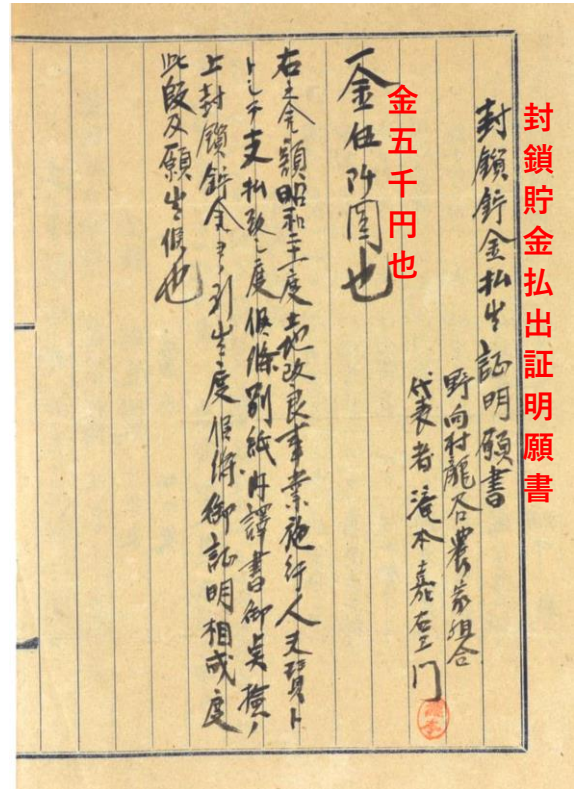 封鎖貯金払出証明願書
封鎖貯金払出証明願書
野向村龍谷農家組合
代表者 滝本嘉右ヱ門
金五千円也
一金伍阡圓也
右之金額昭和二十一年度土地改良事業施行人夫賃ト
トシテ支払致シ度候條別紙内訳書御点検ノ
上封鎖貯金ヨリ引出度候ニ付御証明相成度
此段及願出候也